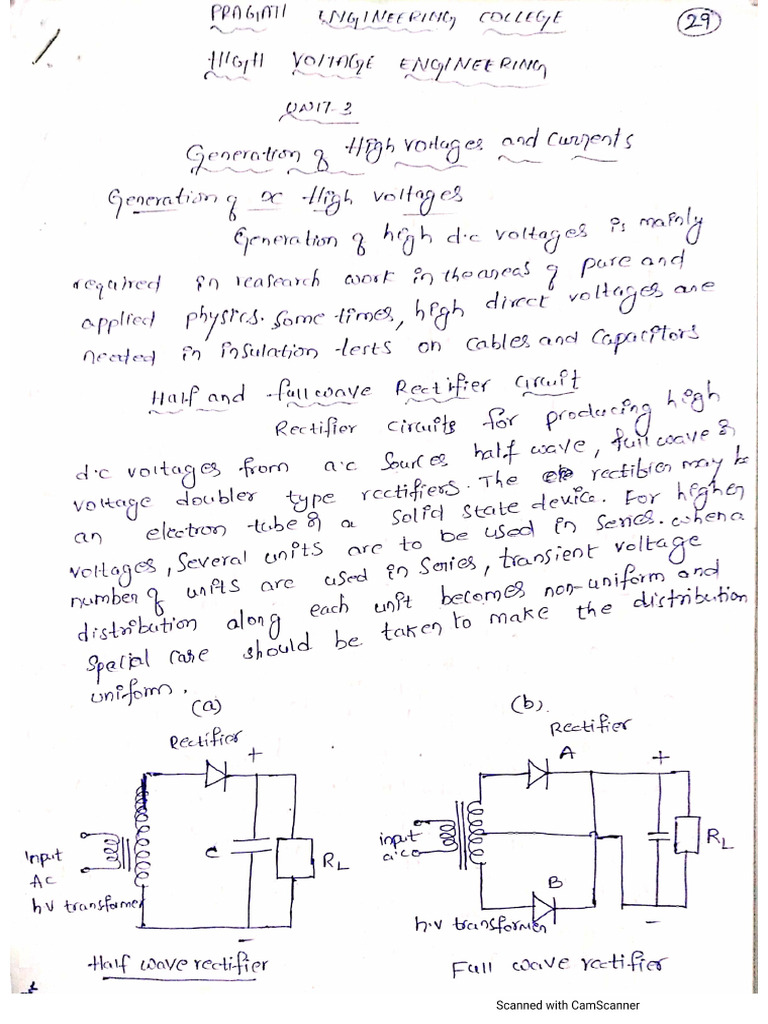 PRAGATI ENGINEERING COLLEGE
29
HIGH VOLTAGE ENGINEERING
UNIT-2
Generation of High voltages and currents
Generation of DC High voltages
Generation of high d.c voltages is mainly
required in reasearch work in the areas of pure and
applied physics. Some times, high direct voltages are
needed in insulation tests on cables and capacitors
Half and full wave Rectifier circuit
Rectifier circuits for producing high
d.c voltages from a.c sources half wave, full wave &
voltage doubler type rectifiers. The rectifier may be
an electron tube & a solid state device. For higher
voltages, several units are to be used in series. when a
number of units are used in series, transient voltage
distribution along each unit becomes non-uniform and
special care should be taken to make the distribution
uniform.
(a)
(b).
Rectifier
Rectifier
+
A
+
C
RL
input
a.c
RL
Input
AC
B
hv transformer
h.v transformer
-
-
Half wave rectifier
Full wave rectifier
Scanned with CamScanner